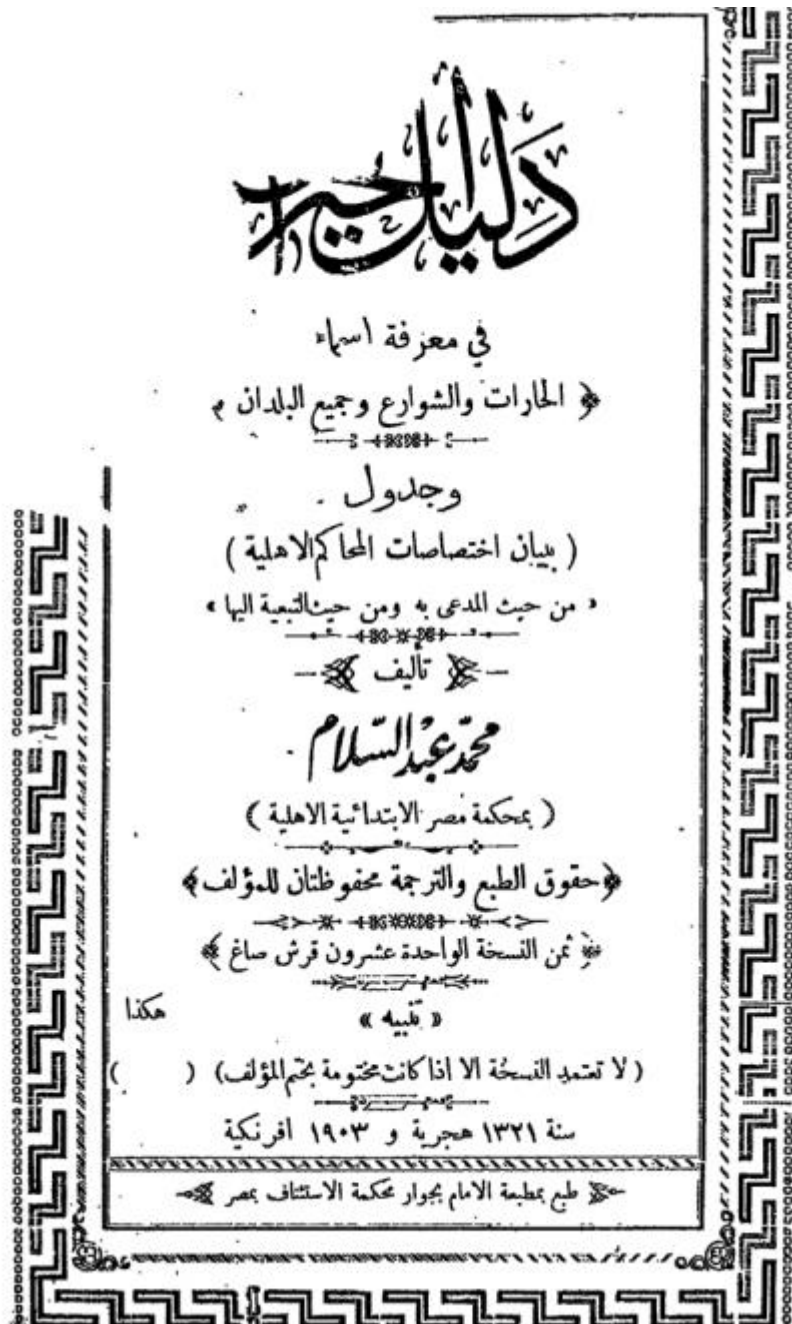 دليل الحيران
في معرفة اسماء
الحارات والشوارع وجميع البلدان
وجدول
( ببيان اختصاصات المحاكم الاهلية )
« من حيث المدعى به ومن حيث التبعية اليها »
تأليف
محمد عبد السلام
( بمحكمة مصر الابتدائية الاهلية )
﴿حقوق الطبع والترجمة محفوظتان للمؤلف﴾
﴿ ثمن النسخة الواحدة عشرون قرش صاغ ﴾
« تنبيه » هكذا
( لا تعتمد النسخة الا اذا كانت مختومة بختم المؤلف ) ( )
سنة ١٣٢١ هجرية و ١٩٠٣ افرنكية
طبع بمطبعة الامام بجوار محكمة الاستئناف بمصر